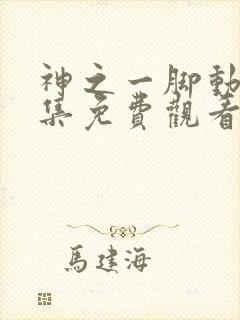 神之一脚動
集免費觀看
馬建海